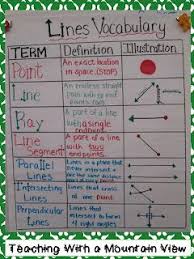 Lines Vocabulary
TERM Definition Illustration
Point An exact location in space (STOP)
Line An endless straight path
Ray A part of a line with a single endpoint
Line Segment A part of a line with two endpoints
Parallel Lines Lines in a plane that never
Intersecting Lines Lines that cross at one point
Perpendicular Lines Lines that intersect to form 4 right angles
Teaching With a Mountain View